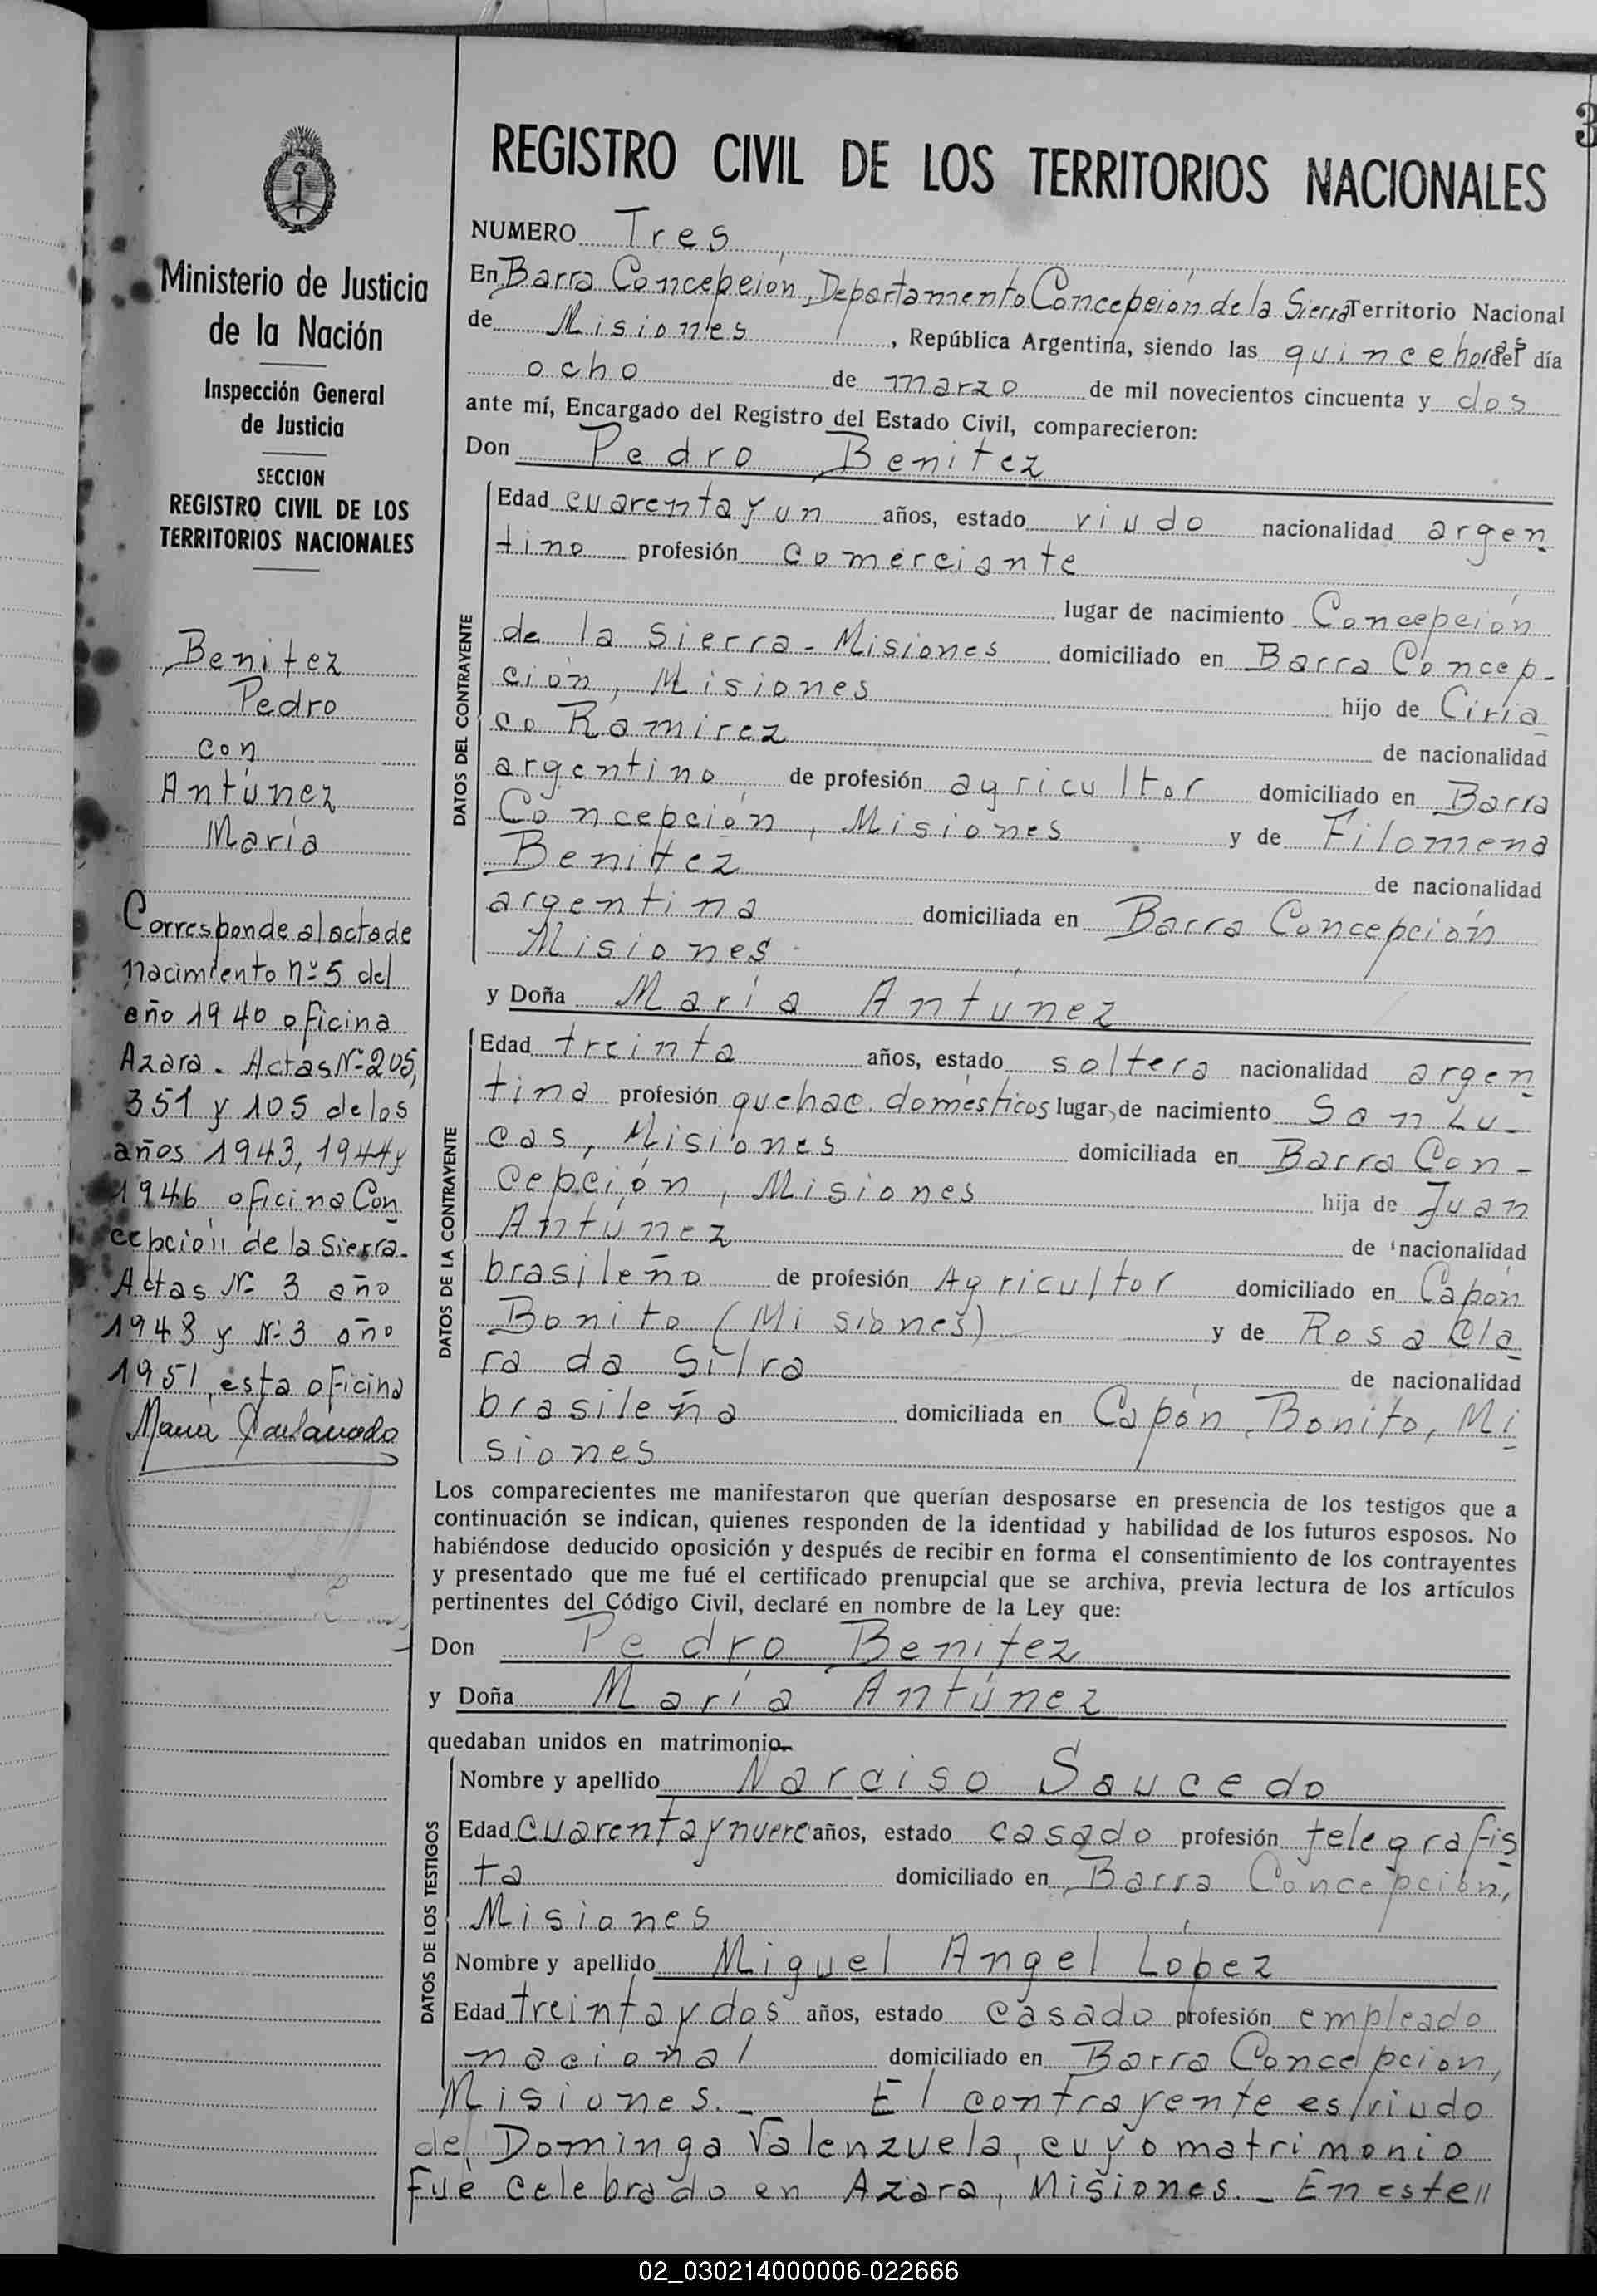 3
REGISTRO CIVIL DE LOS TERRITORIOS NACIONALES
Ministerio de Justicia
de la Nación
Inspección General
de Justicia
SECCION
REGISTRO CIVIL DE LOS
TERRITORIOS NACIONALES
Benitez
Pedro
con
Antúnez
María
Corresponde al acta de
nacimiento nº 5 del
año 1940 oficina
Azara. Actas Nº 205,
351 y 105 de los
años 1943, 1944 y
1946 oficina Con
cepción de la Sierra.
Actas Nº 3 año
1948 y Nº 3 año
1951, esta oficina
María
NUMERO Tres
En Barra Concepción, Departamento Concepción de la Sierra Territorio Nacional
de Misiones, República Argentina, siendo las quince horas del día
ocho de marzo de mil novecientos cincuenta y dos
ante mí, Encargado del Registro del Estado Civil, comparecieron:
Don Pedro Benitez
DATOS DEL CONTRAYENTE
Edad cuarenta y un años, estado viudo nacionalidad argen
tino profesión comerciante
lugar de nacimiento Concepción
de la Sierra - Misiones domiciliado en Barra Concep-
ción, Misiones hijo de Ciria
co Ramirez de nacionalidad
argentino de profesión agricultor domiciliado en Barra
Concepción, Misiones y de Filomena
Benitez de nacionalidad
argentina domiciliada en Barra Concepción
Misiones
y Doña María Antúnez
DATOS DE LA CONTRAYENTE
Edad treinta años, estado soltera nacionalidad argen
tina profesión quehac. domésticos lugar de nacimiento San Lu-
cas, Misiones domiciliada en Barra Con-
cepción, Misiones hija de Juan
Antúnez de nacionalidad
brasileño de profesión Agricultor domiciliado en Capón
Bonito (Misiones) y de Rosa Cla
ra da Silva de nacionalidad
brasileña domiciliada en Capón Bonito, Mi
siones
Los comparecientes me manifestaron que querían desposarse en presencia de los testigos que a
continuación se indican, quienes responden de la identidad y habilidad de los futuros esposos. No
habiéndose deducido oposición y después de recibir en forma el consentimiento de los contrayentes
y presentado que me fué el certificado prenupcial que se archiva, previa lectura de los artículos
pertinentes del Código Civil, declaré en nombre de la Ley que:
Don Pedro Benitez
y Doña María Antúnez
quedaban unidos en matrimonio.
DATOS DE LOS TESTIGOS
Nombre y apellido Narciso Saucedo
Edad cuarenta y nueve años, estado casado profesión telegrafis
ta domiciliado en Barra Concepción,
Misiones
Nombre y apellido Miguel Angel López
Edad treinta y dos años, estado casado profesión empleado
nacional domiciliado en Barra Concepcion,
Misiones. _ El contrayente es viudo
de Dominga Valenzuela, cuyo matrimonio
fué celebrado en Azara, Misiones. _ En este //
02_030214000006-022666